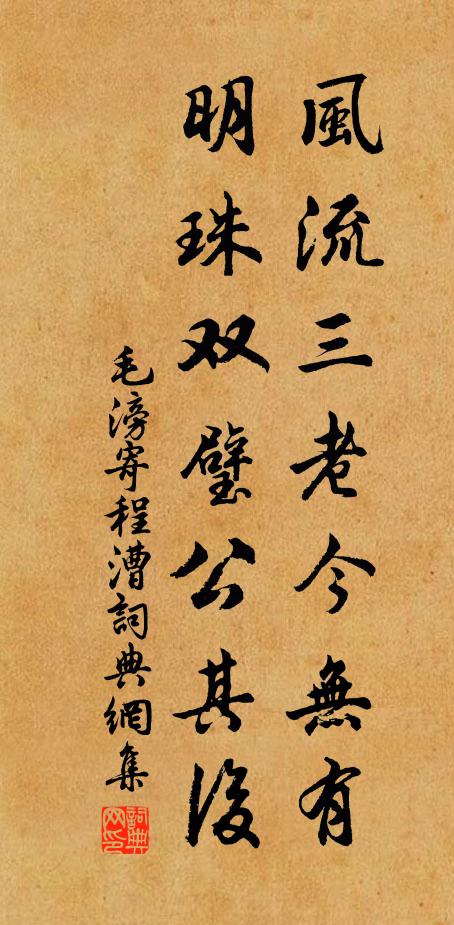 風流三老今無有
明珠双璧公其後
毛滂寄程漕詞典網集
詞典网印